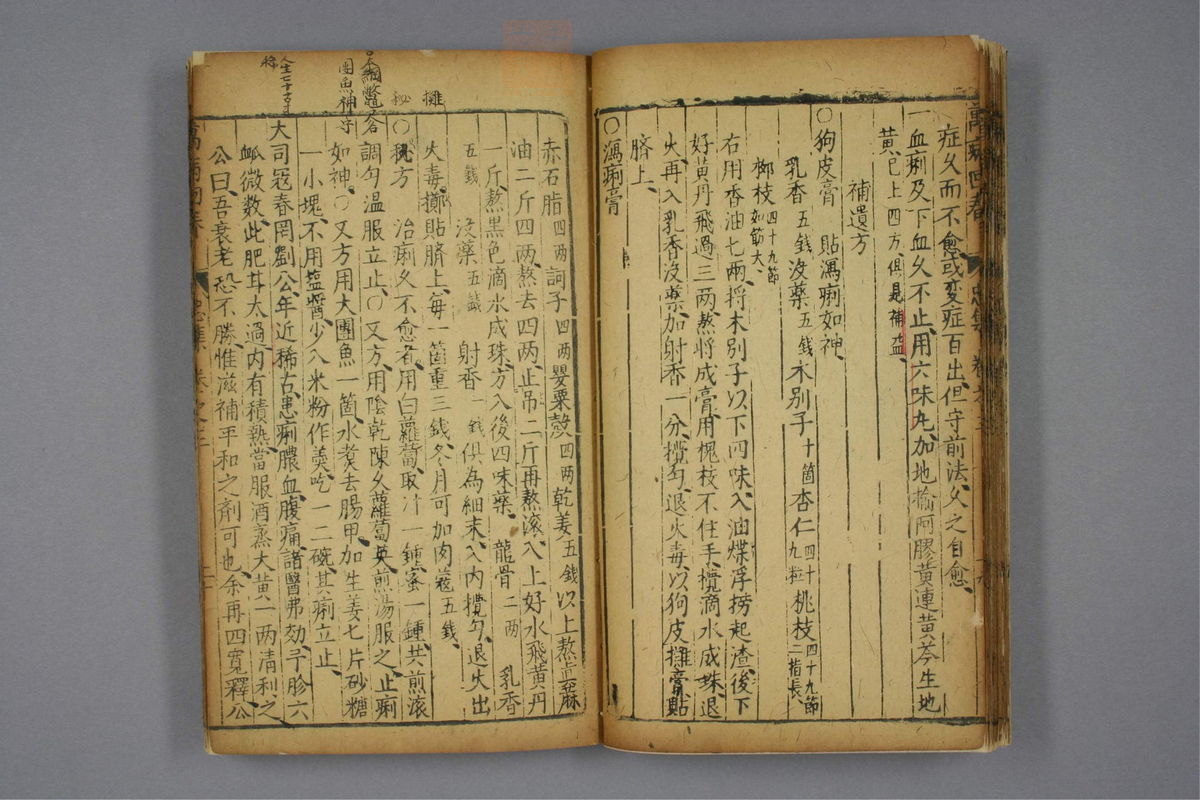 萬病回春 忠集 卷之三
症久而不愈或変症百出但守前法久之自愈
一血痢及下血久不止用六味丸加地榆阿膠黃連黃芩生地
黄已上四方俱是補益
補遺方
○狗皮膏 貼瀉痢如神
乳香五錢没藥五錢木別子十箇杏仁四十九粒桃枝四十九節二指長
柳枝四十九節如筯大
右用香油七兩将木別子以下四味入油煠浮撈起渣後下
好黄丹飛過三兩熬将成膏用槐枝不住手攪滴水成珠退
火再入乳香没藥加射香一分攪勻退火毒以狗皮攤膏貼
臍上
○瀉痢膏
赤石脂四兩訶子四兩罌粟殼四兩乾姜五錢以上熬真麻
油二斤四兩熬去四兩止吊二斤再熬滚入上好水飛黄丹
一斤熬黑色滴水成珠方入後四味藥 龍骨二兩 乳香
五錢 没藥五錢 射香一錢俱為細末入内攪勻退火出
火毒擲貼臍上每一箇重三錢冬月可加肉蔻五錢
攤
○秘方 治痢久不愈者用白蘿蔔取汁一鍾蜜一鍾共煎滚
秘
調勻温服立止○又方用陰乾陳久蘿蔔英煎湯服之止痢
如神○又方用大團魚一箇水煑去腸甲加生姜七片砂糖
團魚神守
一小塊不用盬醬少入米粉作羮吃一二碗其痢立止
大司冦春岡劉公年近稀古患痢膿血腹痛諸醫弗効予胗六
人生七十古才
稀
衇微数此肥甘太過内有積熱當服酒蒸大黃一兩清利之
公曰吾衰老恐不勝惟滋補平和之劑可也余再四寛釋公
萬病回春 忠集 卷之三